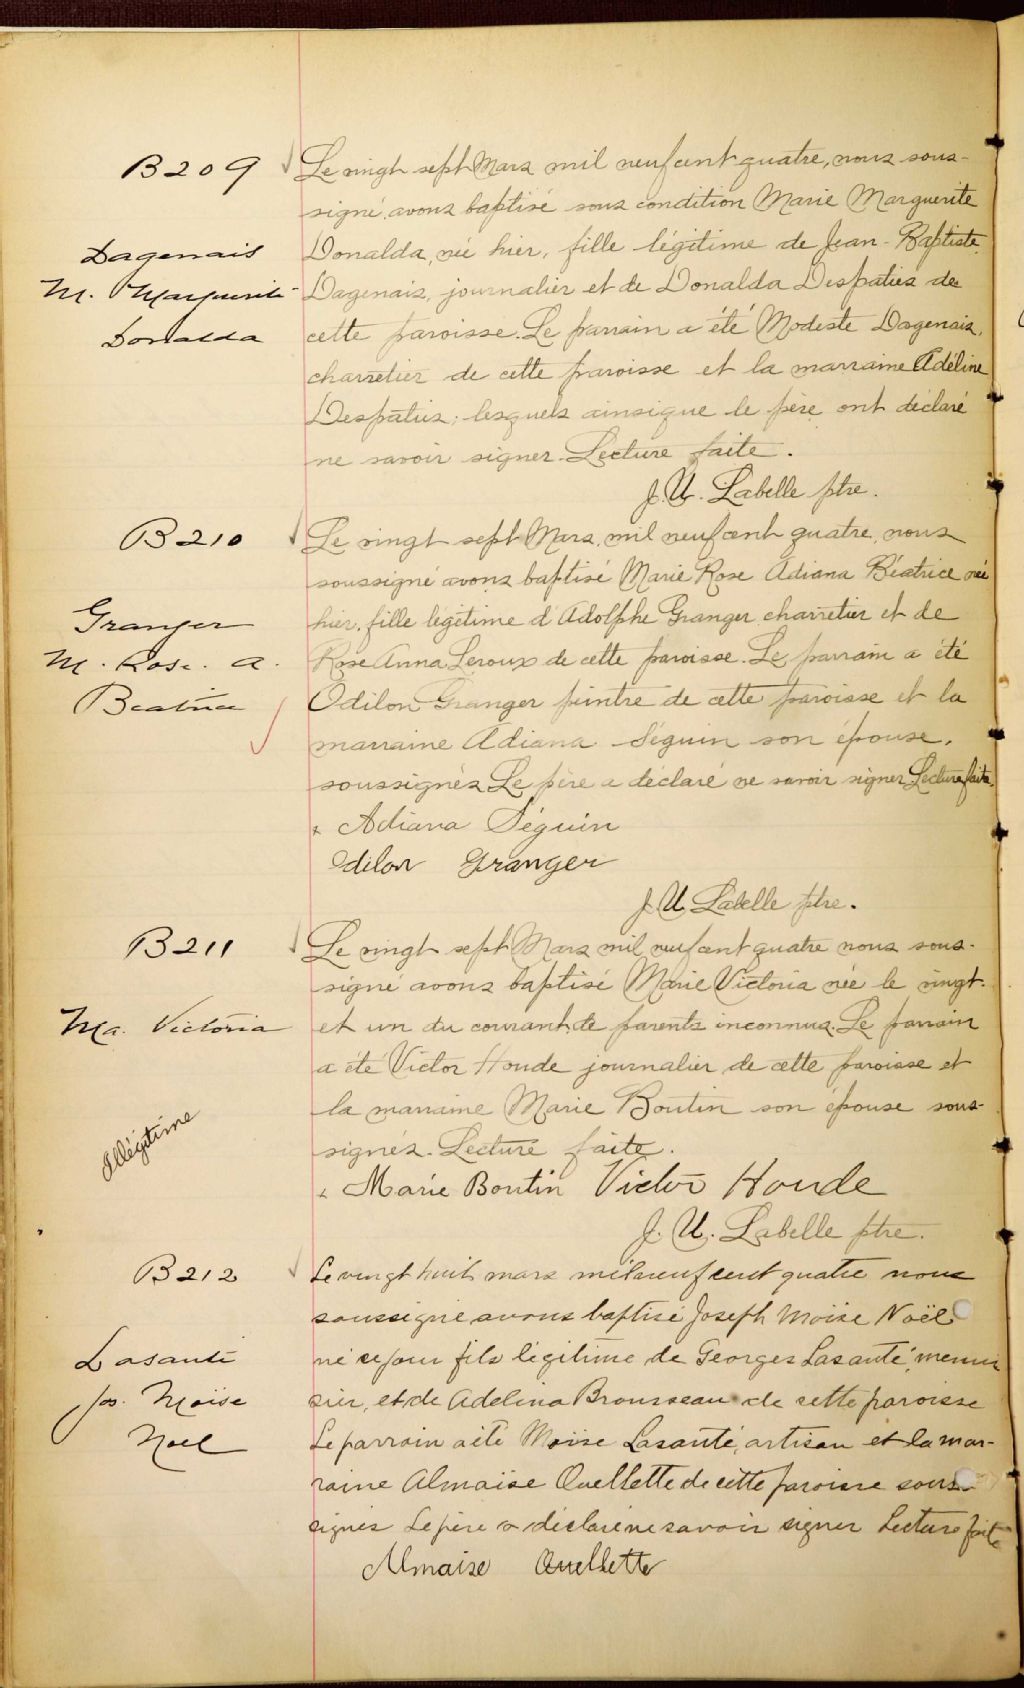 B 209
Dagenais
M. Marguerite
Donalda
Le vingt sept Mars mil neuf cent quatre, nous sous-
signé, avons baptisé sous condition Marie Marguerite
Donalda, née hier, fille légitime de Jean-Baptiste
Dagenais, journalier et de Donalda Despaties de
cette paroisse. Le parrain a été Modeste Dagenais,
charretier de cette paroisse et la marraine Adéline
Despaties; lesquels ainsi que le père ont déclaré
ne savoir signer. Lecture faite.
J. U. Labelle ptre.
B 210
Granger
M. Rose. A.
Beatrice
Le vingt sept Mars, mil neuf cent quatre, nous
soussigné avons baptisé Marie Rose Adiana Béatrice née
hier, fille légitime d'Adolphe Granger charretier et de
Rose Anna Leroux de cette paroisse. Le parrain a été
Odilon Granger peintre de cette paroisse et la
marraine Adiana Séguin son épouse,
soussignés. Le père a déclaré ne savoir signer. Lecture faite.
x Adiana Séguin
Odilon Granger
J. U. Labelle ptre.
B 211
Ma. Victoria
Illégitime
Le vingt sept Mars mil neuf cent quatre nous sous-
signé avons baptisé Marie Victoria née le vingt-
et un du courant, de parents inconnus. Le parrain
a été Victor Houde journalier de cette paroisse et
la marraine Marie Boutin son épouse sous-
signés. Lecture faite.
x Marie Boutin Victor Houde
J. U. Labelle ptre.
B 212
Lasanté
Jos. Moïse
Noël
Le vingt huit mars mil neuf cent quatre nous
soussigné avons baptisé Joseph Moïse Noël
né ce jour fils légitime de Georges Lasanté, menui
sier, et de Adelina Brousseau de cette paroisse
Le parrain a été Moïse Lasanté, artisan et la mar-
raine Almaïse Ouellette de cette paroisse sous-
signés Le père a déclaré ne savoir signer Lecture faite
Almaise Ouellette